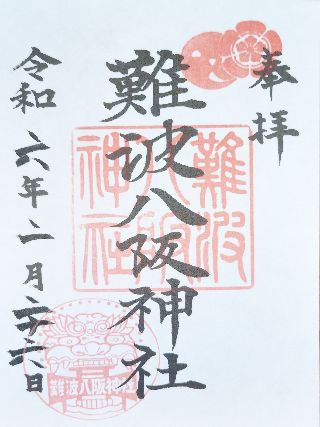 奉拝
難波八阪神社
難波
八阪
神社
令和六年二月二十六日
難波八阪神社